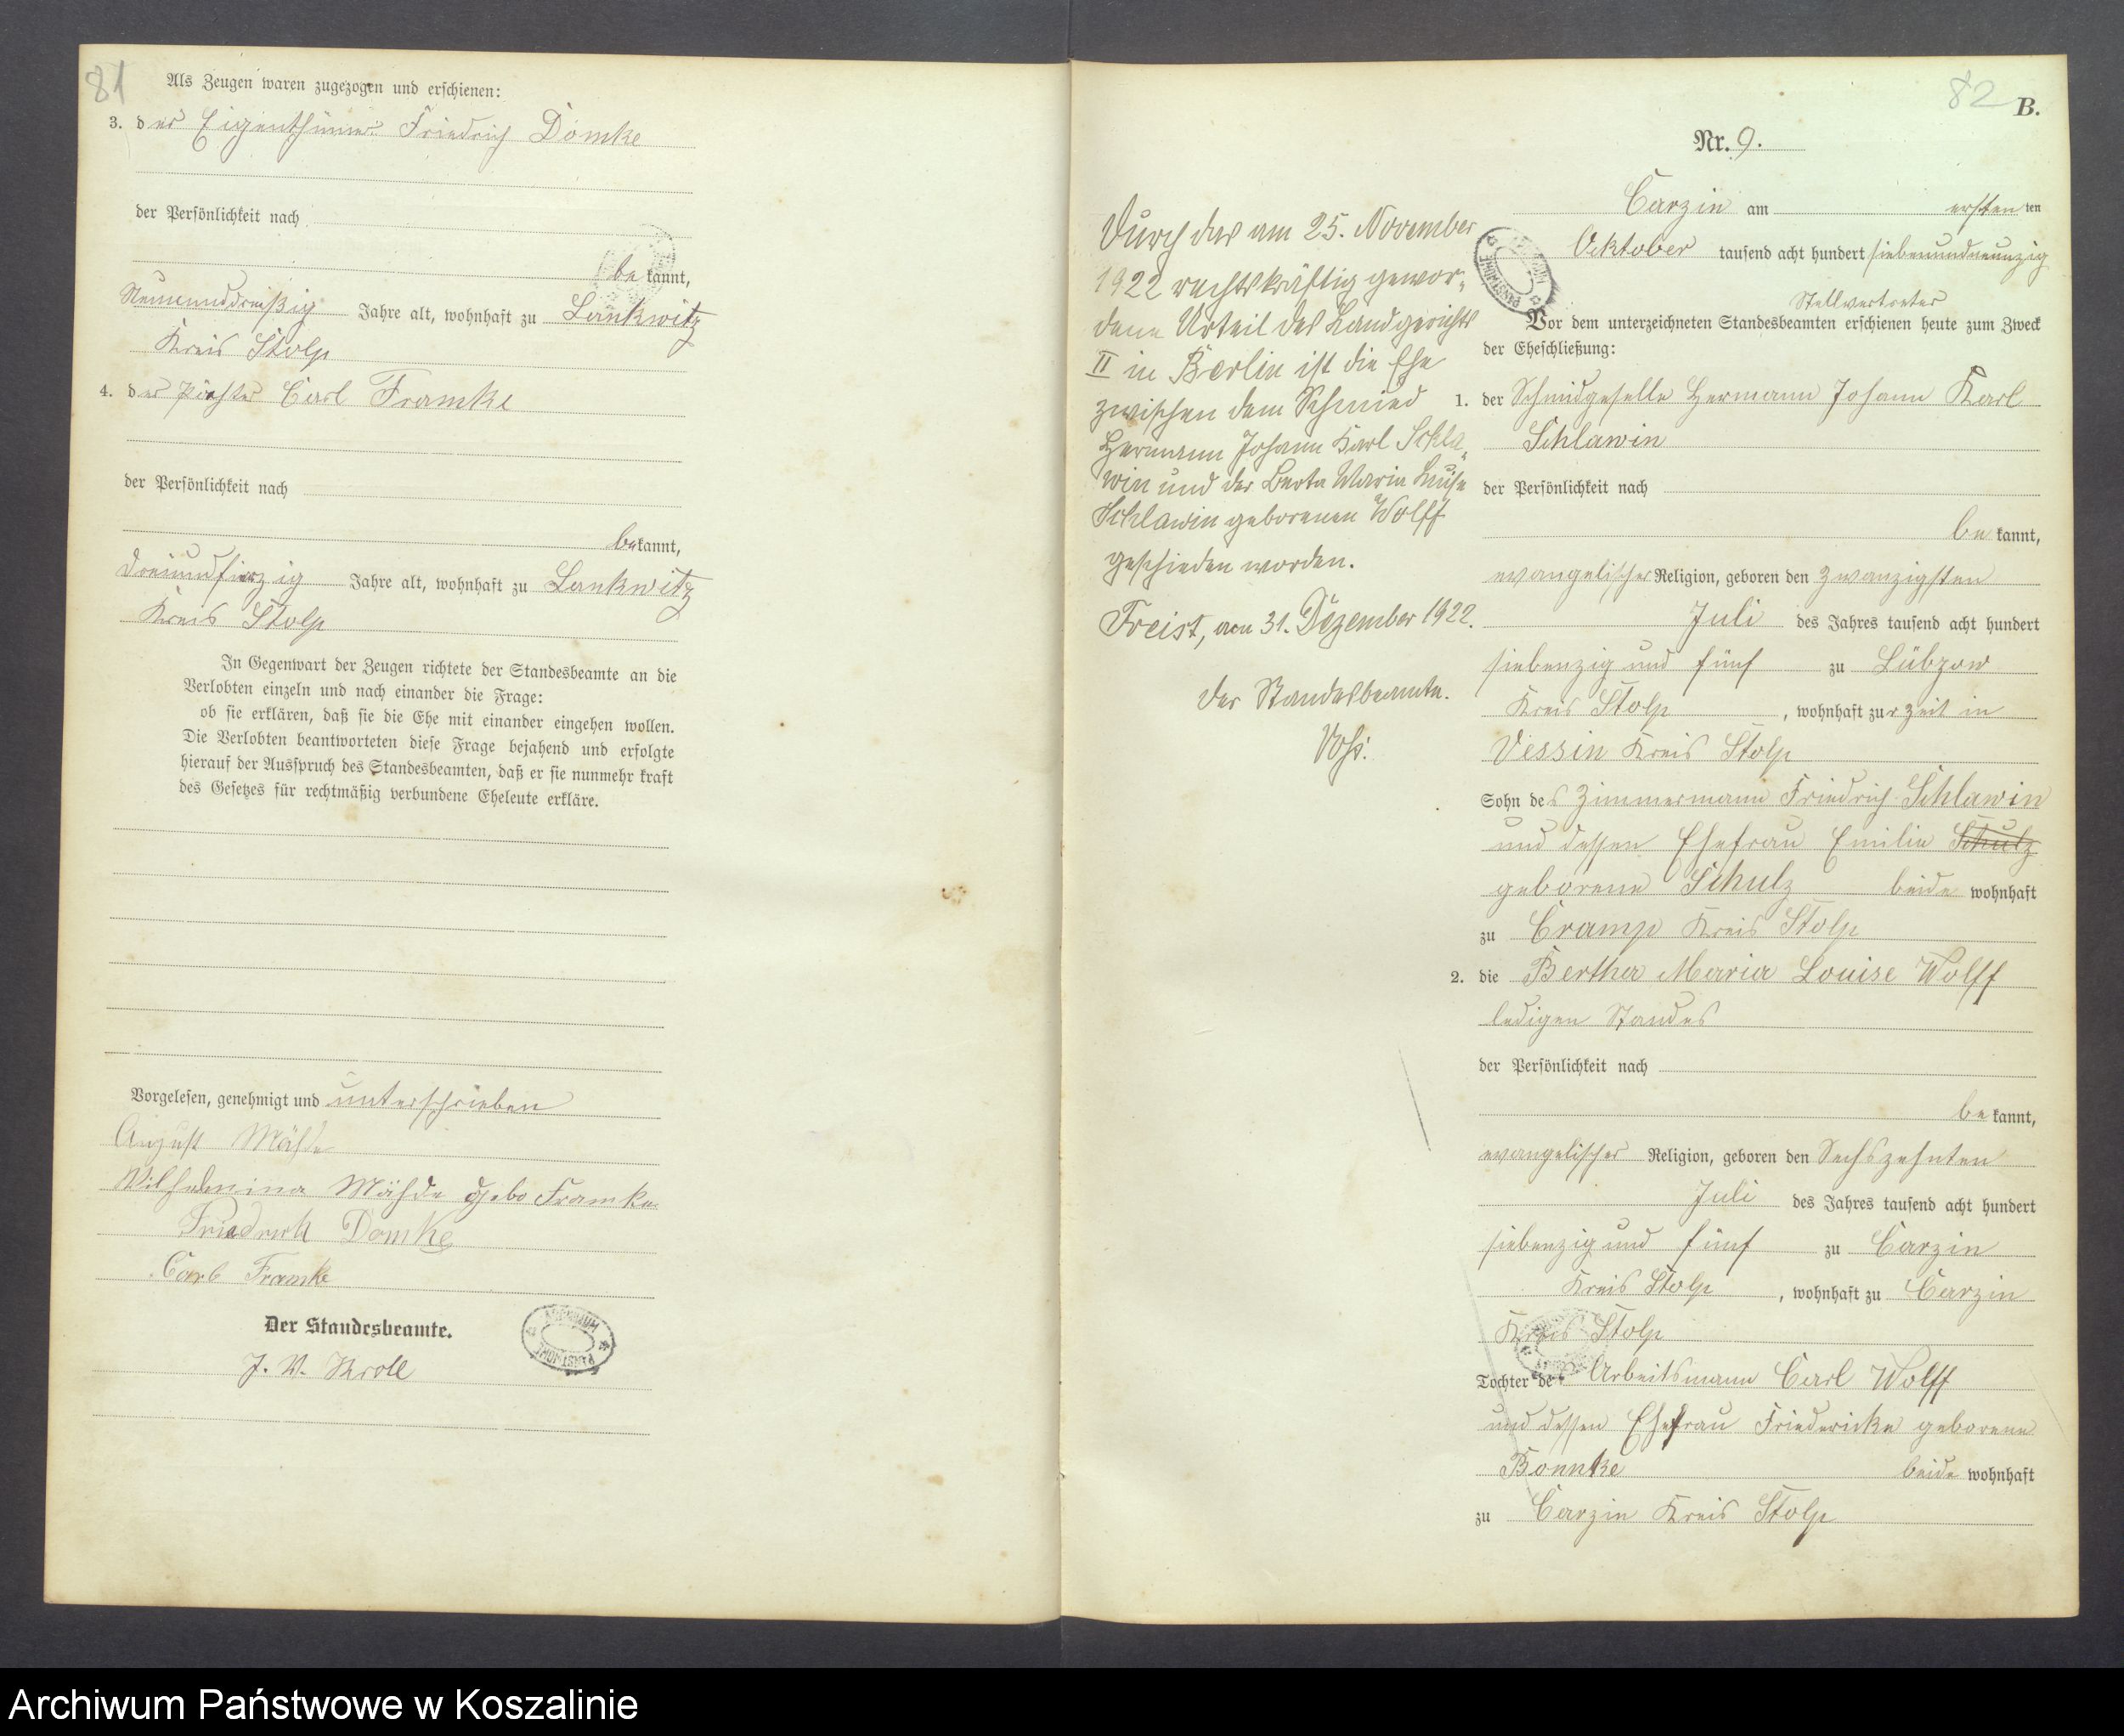 81
Als Zeugen waren zugezogen und erschienen:
3. der Eigenthümer Friedrich Domke
der Persönlichkeit nach
bekannt,
Neununddreißig Jahre alt, wohnhaft zu Lankwitz
Kreis Stolp
4. der Pächter Carl Framke
der Persönlichkeit nach
bekannt,
dreiundfierzig Jahre alt, wohnhaft zu Lankwitz
Kreis Stolp
In Gegenwart der Zeugen richtete der Standesbeamte an die
Verlobten einzeln und nach einander die Frage:
ob sie erklären, daß sie die Ehe mit einander eingehen wollen.
Die Verlobten beantworteten diese Frage bejahend und erfolgte
hierauf der Ausspruch des Standesbeamten, daß er sie nunmehr kraft
des Gesetzes für rechtmäßig verbundene Eheleute erkläre.
Vorgelesen, genehmigt und unterschrieben
August Mähde
Wilhelmina Mähde gebo Framke
Friedrich Domke
Carl Framke
Der Standesbeamte.
J. V. Kroll
82
B.
Nr. 9.
Carzin am ersten ten
Oktober tausend acht hundert siebenundneunzig
Stellvertreter
Vor dem unterzeichneten Standesbeamten erschienen heute zum Zweck
der Eheschließung:
1. der Schmidgeselle Hermann Johann Karl
Schlawin
der Persönlichkeit nach
bekannt,
evangelischer Religion, geboren den zwanzigsten
Juli des Jahres tausend acht hundert
siebenzig und fünf zu Lübzow
Kreis Stolp, wohnhaft zur Zeit in
Vessin Kreis Stolp
Sohn des Zimmermann Friedrich Schlawin
und dessen Ehefrau Emilie Schulz
geborene Schulz beide wohnhaft
zu Cramp Kreis Stolp
2. die Bertha Maria Louise Wolff
ledigen Standes
der Persönlichkeit nach
bekannt,
evangelischer Religion, geboren den Sechszehnten
Juli des Jahres tausend acht hundert
siebenzig und fünf zu Carzin
Kreis Stolp, wohnhaft zu Carzin
Kreis Stolp
Tochter des Arbeitsmann Carl Wolff
und dessen Ehefrau Friedericke geborene
Bonnke beide wohnhaft
zu Carzin Kreis Stolp
Durch das am 25. November
1922 rechtskräftig gewor-
dene Urteil des Landgerichts
II in Berlin ist die Ehe
zwischen dem Schmied
Hermann Johann Karl Schla-
win und der Berta Maria Luise
Schlawin geborenen Wolff
geschieden worden.
Freist, am 31. Dezember 1922.
Der Standesbeamte.
Archiwum Państwowe w Koszalinie